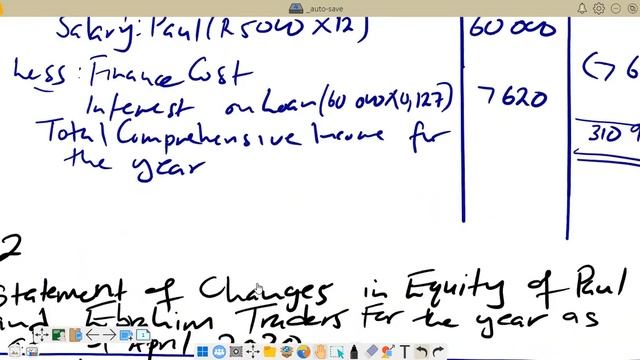 _auto-save
Salary: Paul (R5000 X 12) 60 000
Less: Finance Cost (7 6
Interest on Loan (60 000 X 0,127) 7 620
Total Comprehensive Income for 310 9
the year
2
Statement of Changes in Equity of Paul
and Ebrahim Traders For the year as
April 2020